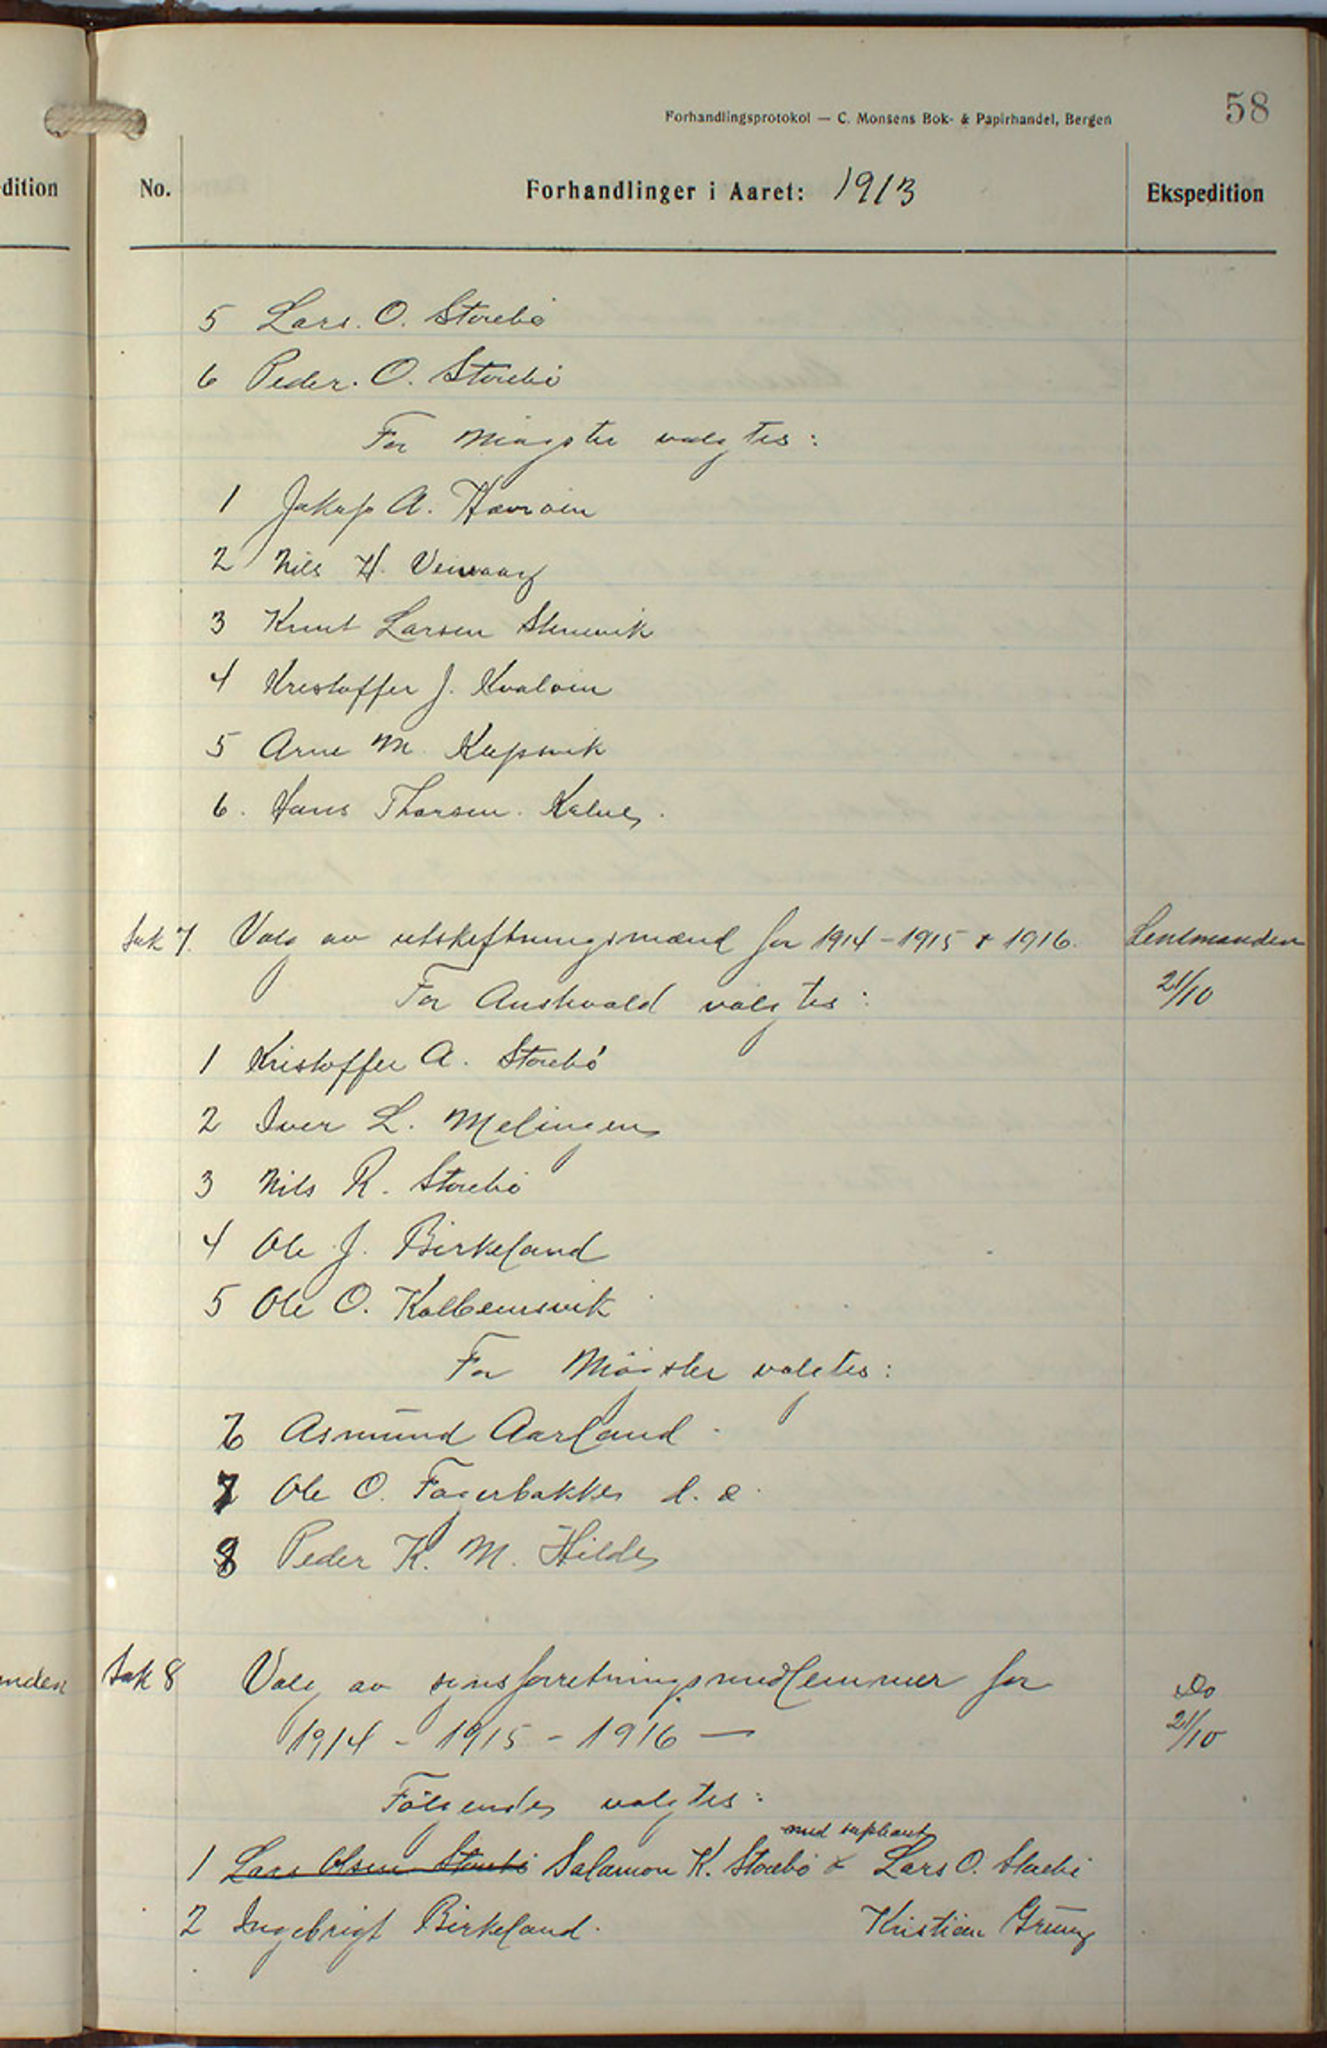 Forhandlingsprotokol — C. Monsens Bok- & Papirhandel, Bergen
58
dition
No.
Forhandlinger i Aaret: 1913
Ekspedition
5 Lars. O. Storebö
6 Peder. O. Storebö
For Møgster valgtes:
1 Jakop A. Havroin
2 Nils H. Veivaag
3 Knut Larsen Stenevik
4 Kristoffer J. Kvaloin
5 Arne M. Kepsvik
6. Hans Thorsen. Kalve.
Sak 7. Valg av utskiftningsmænd for 1914-1915 & 1916.
Lensmanden
21/10
For Austevold valgtes:
1 Kristoffer A. Storebö
2 Iver L. Melingen
3 Nils R. Storebö
4 Ole J. Birkeland
5 Ole O. Kolbeinsvik
For Møgster valgtes:
6 Asmund Aarland
7 Ole O. Fagerbakke d. e.
8 Peder K. M. Hilde
nden
Sak 8 Valg av synsforretningsmedlemmer for
1914 - 1915 - 1916 —
Do
21/10
Følgende valgtes:
med suplant
1 Lars Olsen Storebö Salamon K. Storebö & Lars O. Storebö
2 Ingebrigt Birkeland. Kristian Grung